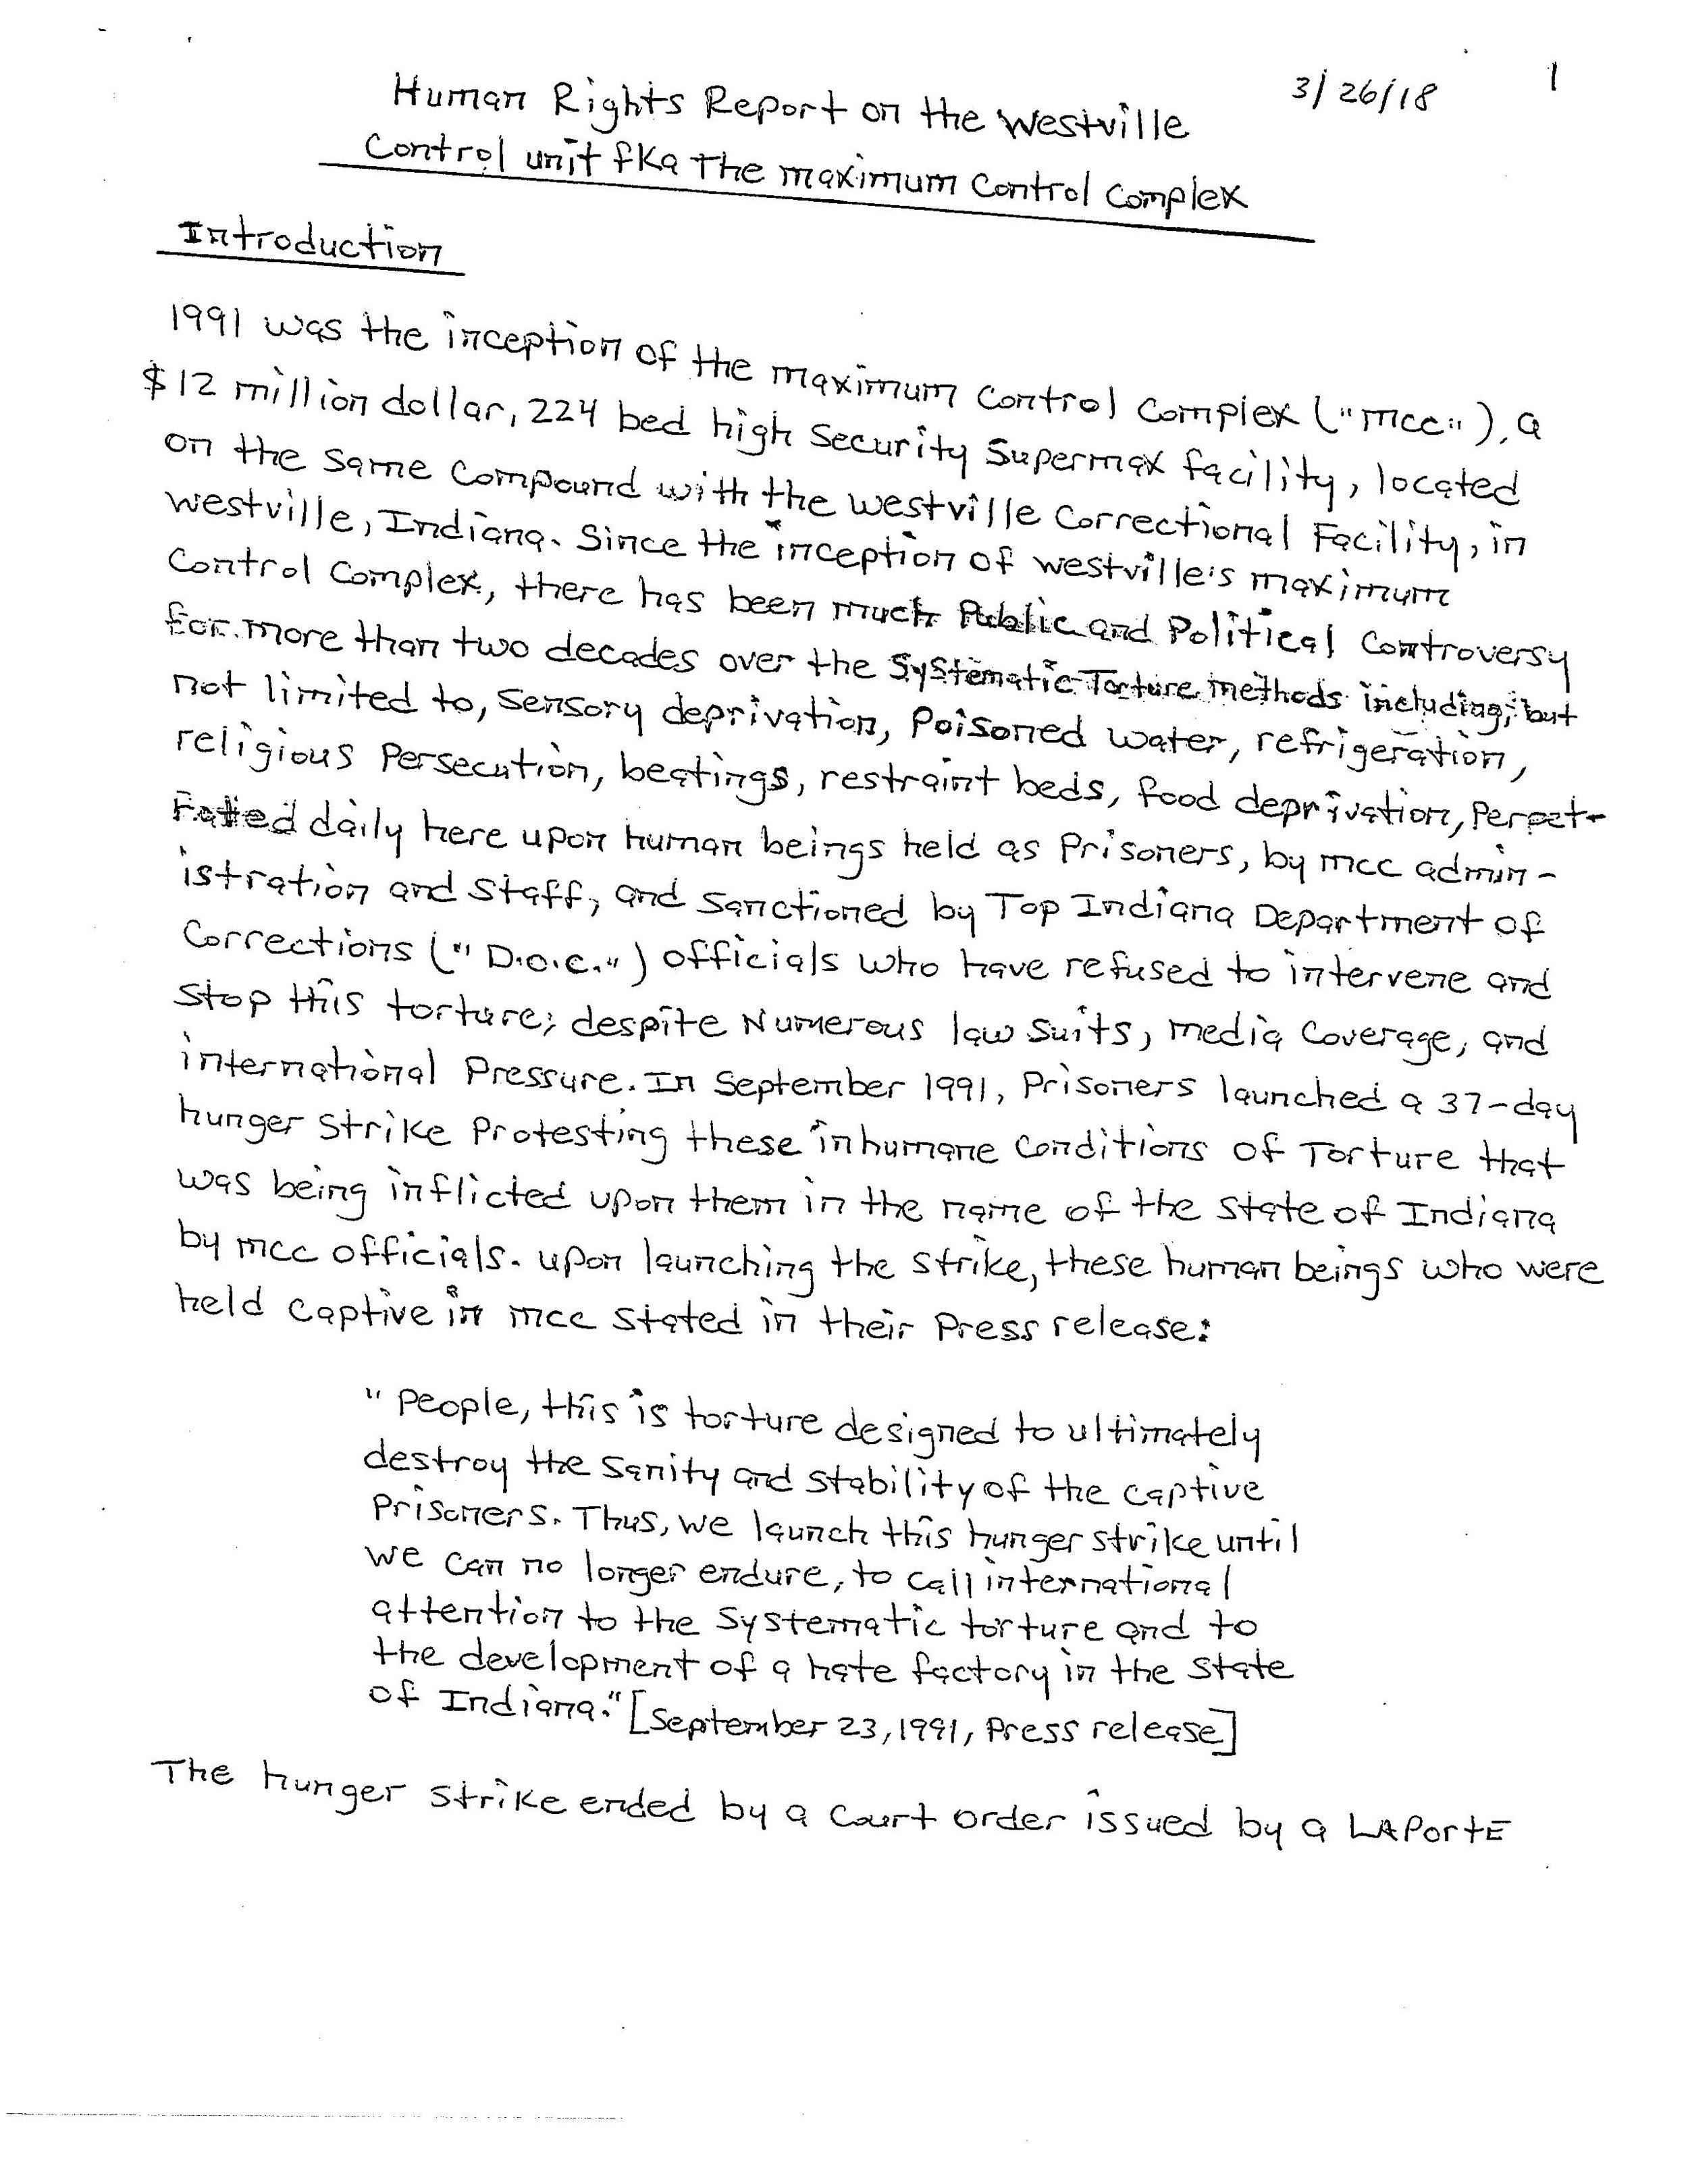 3/26/18 1
Human Rights Report on the Westville
Control unit fka The maximum Control Complex
Introduction
1991 was the inception of the maximum Control Complex ("mcc"), a
$12 million dollar, 224 bed high Security Supermax facility, located
on the same compound with the Westville Correctional Facility, in
Westville, Indiana. Since the inception of Westville's maximum
Control Complex, there has been much Public and Political Controversy
for more than two decades over the Systematic Torture methods including, but
not limited to, sensory deprivation, Poisoned water, refrigeration,
religious Persecution, beatings, restraint beds, food deprivation, Perpet-
rated daily here upon human beings held as Prisoners, by mcc admin-
istration and Staff, and sanctioned by Top Indiana Department of
Corrections ("D.O.C.") officials who have refused to intervene and
stop this torture; despite Numerous law suits, media Coverage, and
international Pressure. In September 1991, Prisoners launched a 37-day
hunger strike Protesting these inhumane Conditions of Torture that
was being inflicted upon them in the name of the State of Indiana
by mcc officials. upon launching the strike, these human beings who were
held captive in mcc stated in their Press release:
"People, this is torture designed to ultimately
destroy the sanity and stability of the captive
Prisoners. Thus, we launch this hunger strike until
we can no longer endure, to call international
attention to the Systematic torture and to
the development of a hate factory in the State
of Indiana." [September 23, 1991, Press release]
The hunger strike ended by a Court order issued by a LAPortE